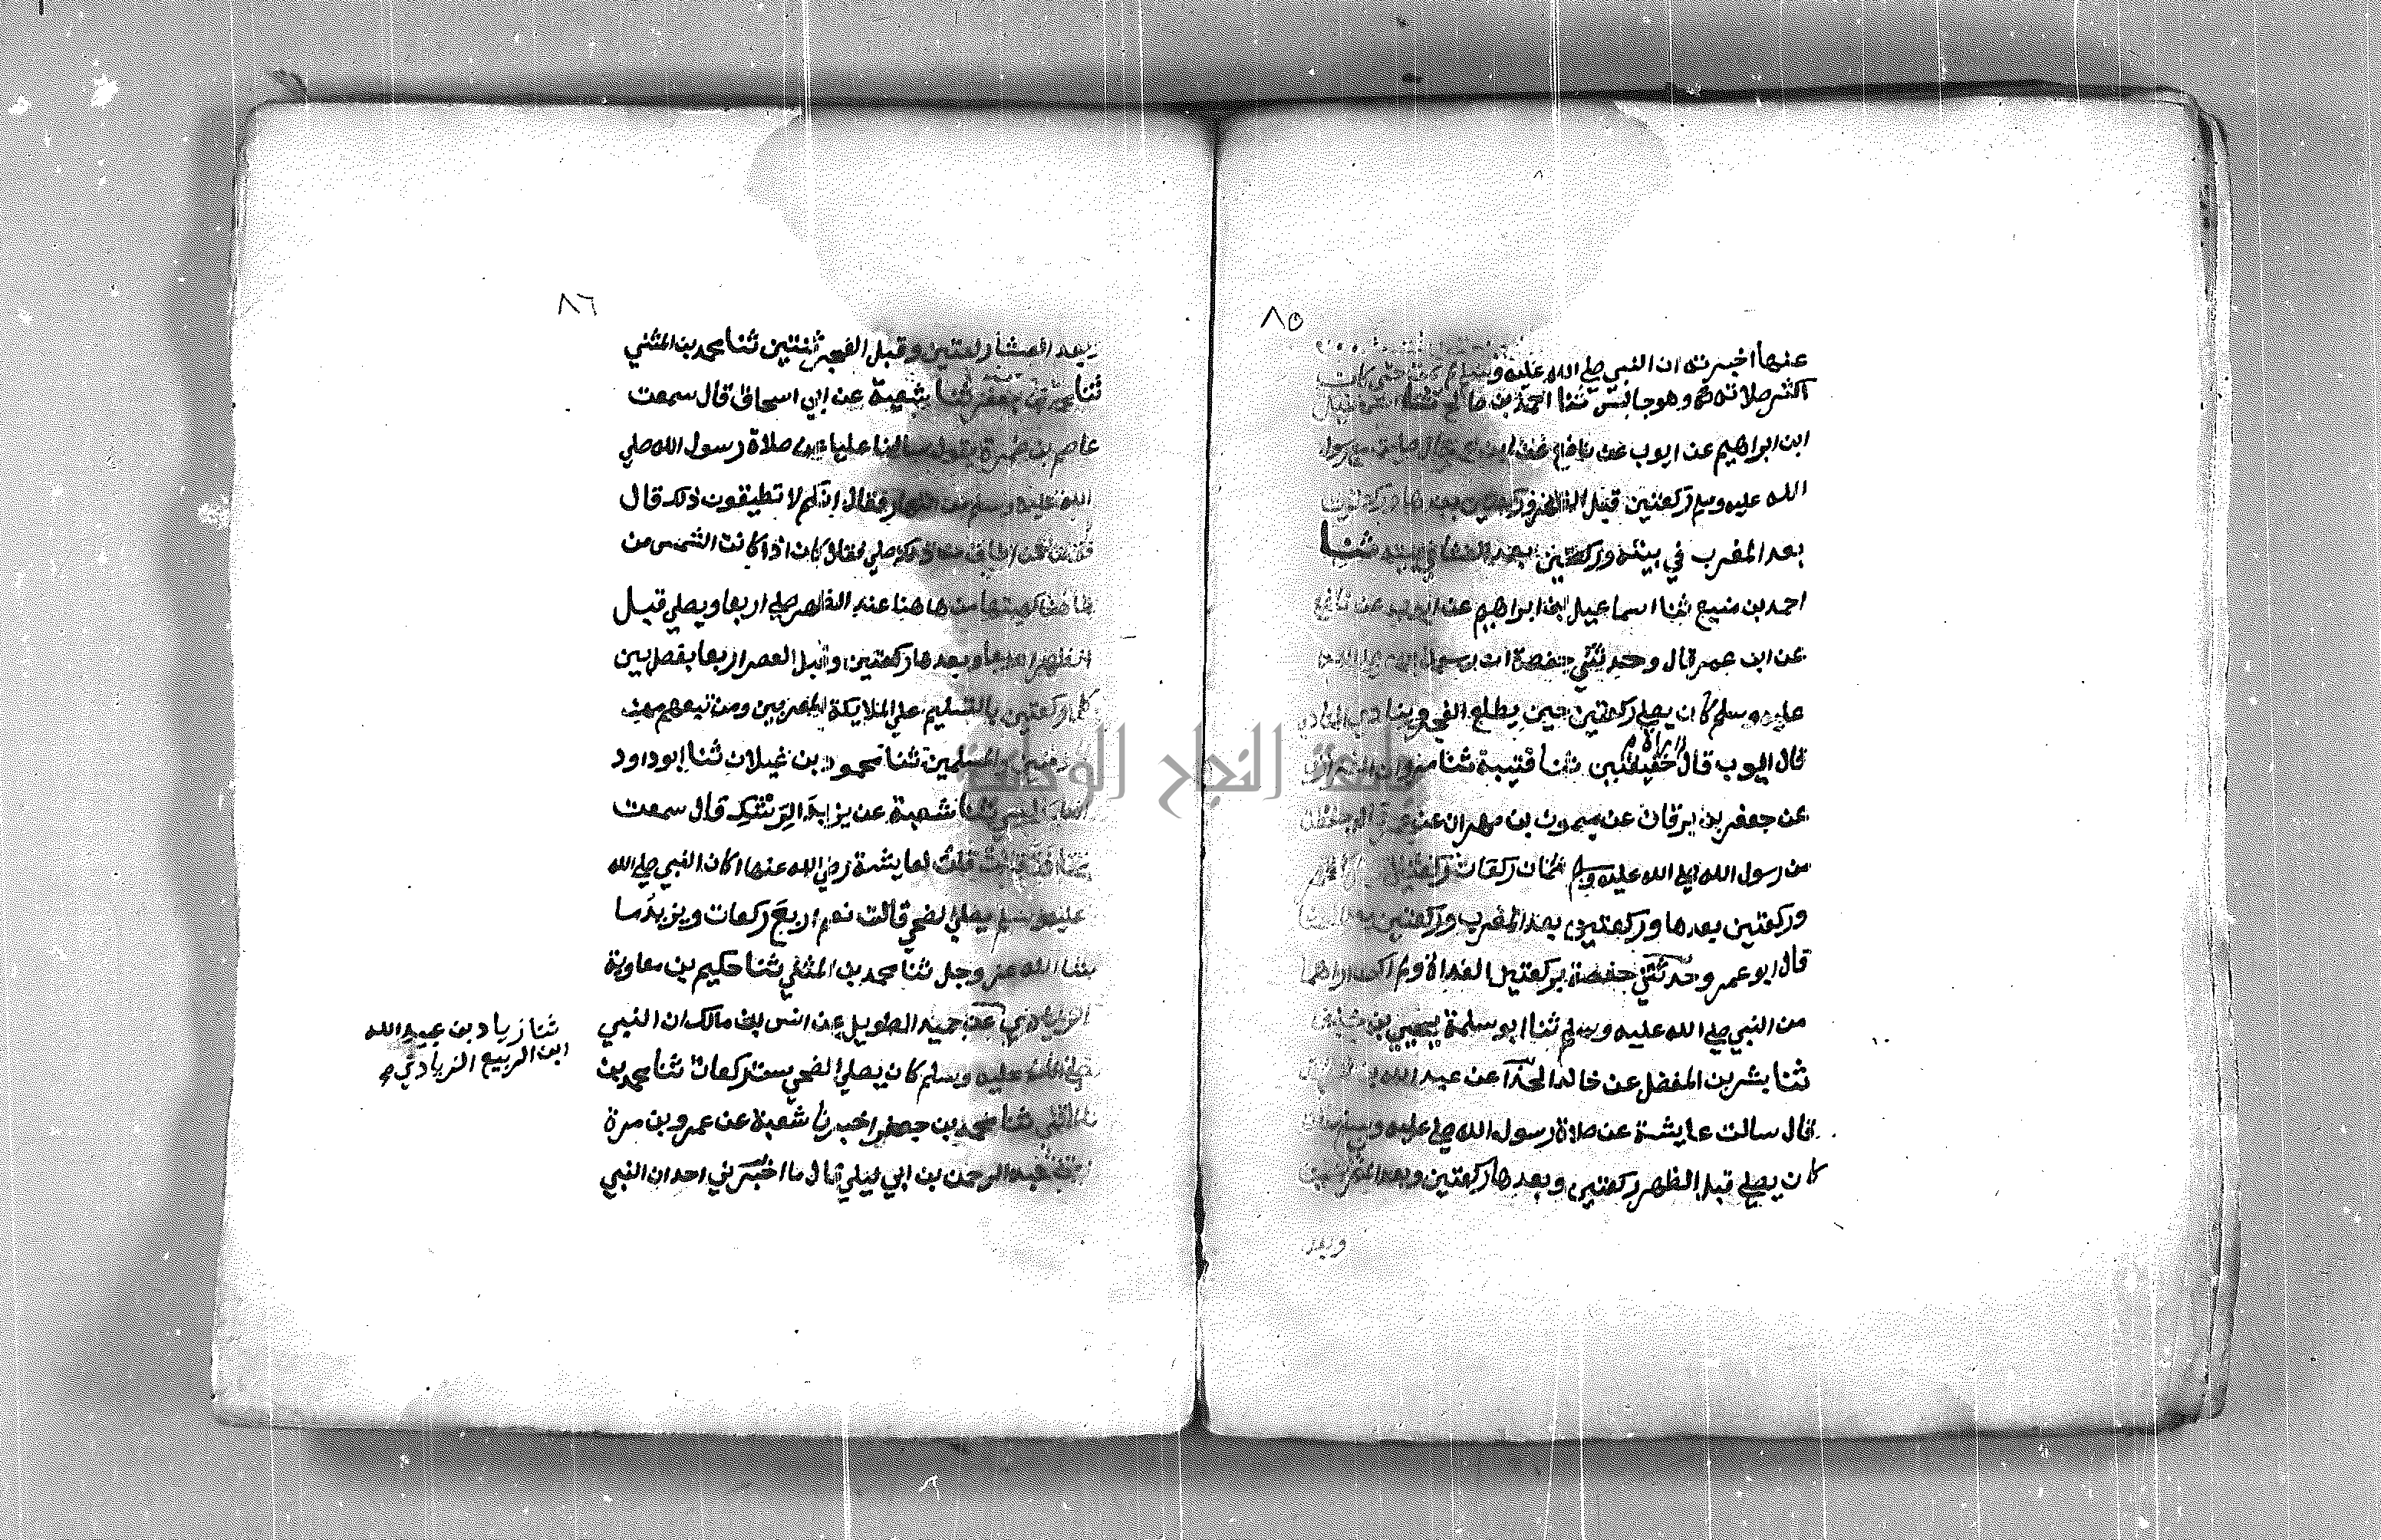 ٨٥
عنها اخبرته ان النبي صلي الله عليه وسلم لم يمت حتي كان
اكثر صلاته وهو جالس ثنا احمد بن
ابن ابراهيم عن ايوب عن نافع عن ابن عمر قال صليت مع رسول
الله عليه وسلم ركعتين قبل الظهر وركعتين بعدها وركعتين
بعد المغرب في بيته وركعتين بعد العشا في بيته ثنا
احمد بن منيع ثنا اسماعيل ابن ابراهيم عن ايوب عن نافع
عن ابن عمر قال وحدثتني حفصة ان رسول الله صلي الله
عليه وسلم كان يصلي ركعتين حين يطلع الفجر وينادي المنادي
قال ايوب قال خفيفتين ثنا قتيبة ثنا مروان الفزاري
اراه
عن جعفر بن برقان عن ميمون بن مهران عن ابن عمر قال حفظت
من رسول الله صلي الله عليه وسلم ثمان ركعات ركعتين قبل الظهر
وركعتين بعدها وركعتين بعد المغرب وركعتين بعد العشا
قال ابو عمر وحدثتني حفصة بركعتي الغداة ولم اكن اراهما
من النبي صلي الله عليه وسلم ثنا ابو سلمة يحيي بن خلف
ثنا بشر بن المفضل عن خالد الحذا عن عبد الله بن
قال سالت عايشة عن صلاة رسول الله صلي عليه وسلم قالت
كان يصلي قبل الظهر ركعتين وبعدها ركعتين وبعد المغرب
وبعد
٨٦
وبعد العشا ركعتين وقبل الفجر ثنتين ثنا محمد بن المثني
ثنا محمد بن جعفر ثنا شعبة عن ابي اسحاق قال سمعت
عاصم بن ضمرة يقول سالنا عليا عن صلاة رسول الله صلي
الله عليه وسلم من النهار فقال انكم لا تطيقون ذلك قال
فقلنا من اطاق منا ذلك صلي فقال كان اذا كانت الشمس من
هاهنا كهيتها من هاهنا عند الظهر صلي اربعا ويصلي قبل
الظهر اربعا وبعدها ركعتين وقبل العصر اربعا يفصل بين
كل ركعتين بالتسليم علي الملايكة المقربين ومن تبعهم من
المومنين والمسلمين ثنا محمود بن غيلان ثنا ابو داود
الطيالسي ثنا شعبة عن يزيد الرشك قال سمعت
معاذة قالت قلت لعايشة رضي الله عنها اكان النبي صلي الله
عليه وسلم يصلي الضحي قالت نعم اربع ركعات ويزيد ما
شا الله عز وجل ثنا محمد بن المثني ثنا حكيم بن معاوية
الزيادي عن حميد الطويل عن انس ابن مالك ان النبي
صلي الله عليه وسلم كان يصلي الضحي ست ركعات ثنا محمد بن
المثني ثنا محمد بن جعفر اخبرنا شعبة عن عمرو بن مرة
عن عبد الرحمن بن ابي ليلي قال ما اخبرني احد ان النبي
ثنا زياد بن عبيد الله
ابن الربيع الزيادي